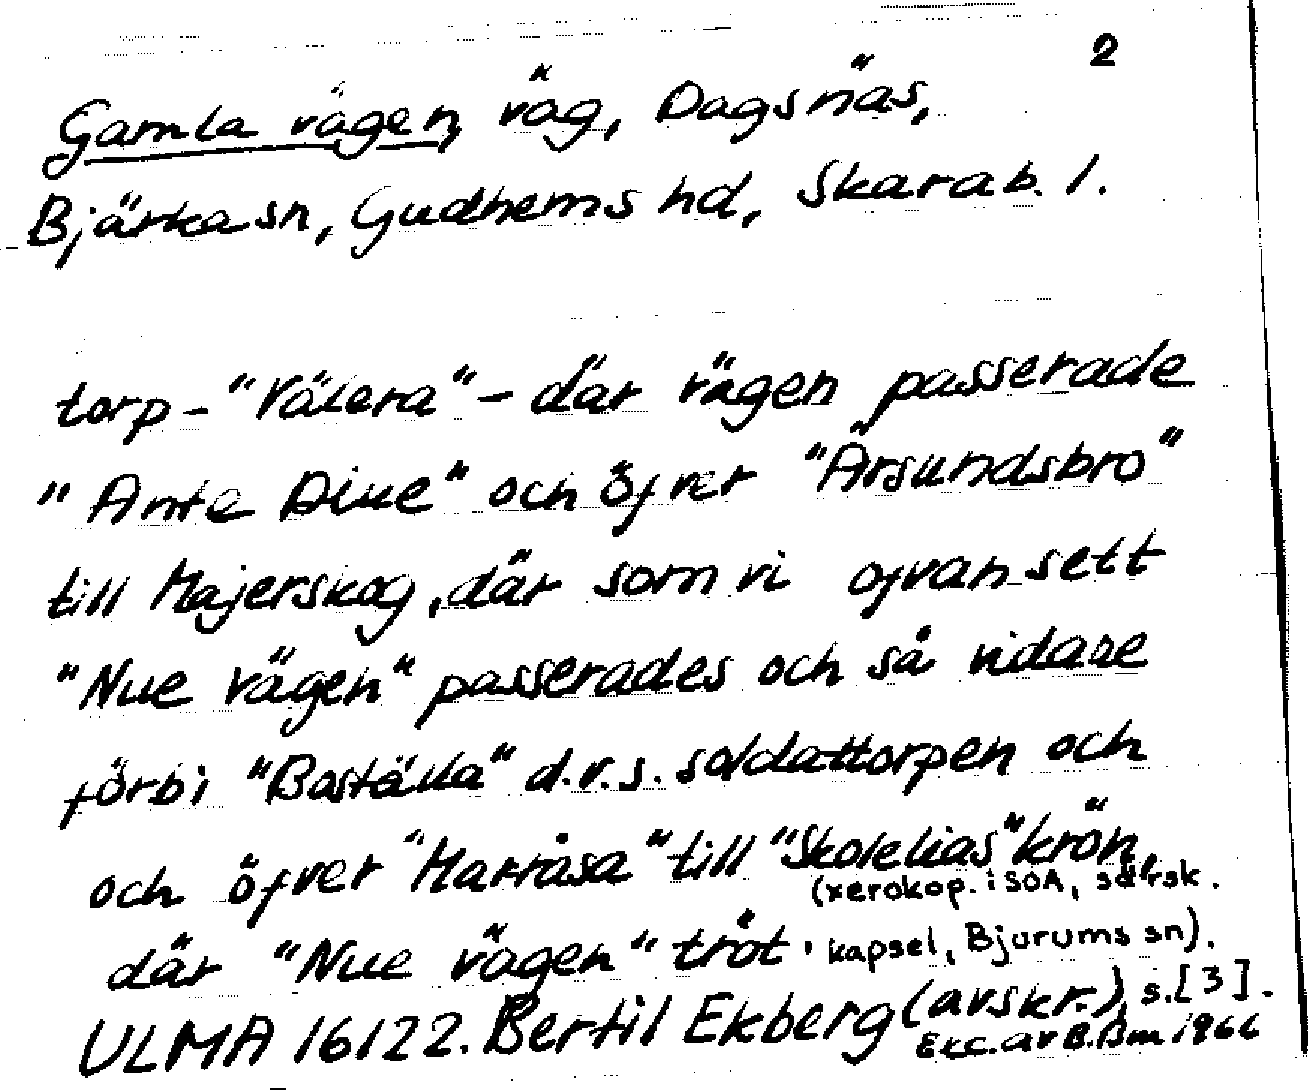 2
Gamla vägen, väg, Dagsnäs,
Bjärka sn, Gudhems hd, Skarab. l.
torp - "Välera" - där vägen passerade
"Ante Diue" och öfver "Årsundsbro"
till Majerskog, där som vi ofvan sett
"Nue vägen" passerades och så vidare
förbi "Boställa" d.v.s. soldattorpen och
och öfver "Marråsa" till "Skolelias" krön,
där "Nue vägen" tröt. (xerokop. i SOA, särsk.
kapsel, Bjurums sn).
ULMA 16122. Bertil Ekberg (avskr.), s. [3].
Exc. av B. Bm 1966